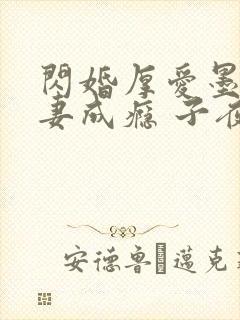 閃婚厚愛墨
妻成癮 子夜
安德魯·邁克